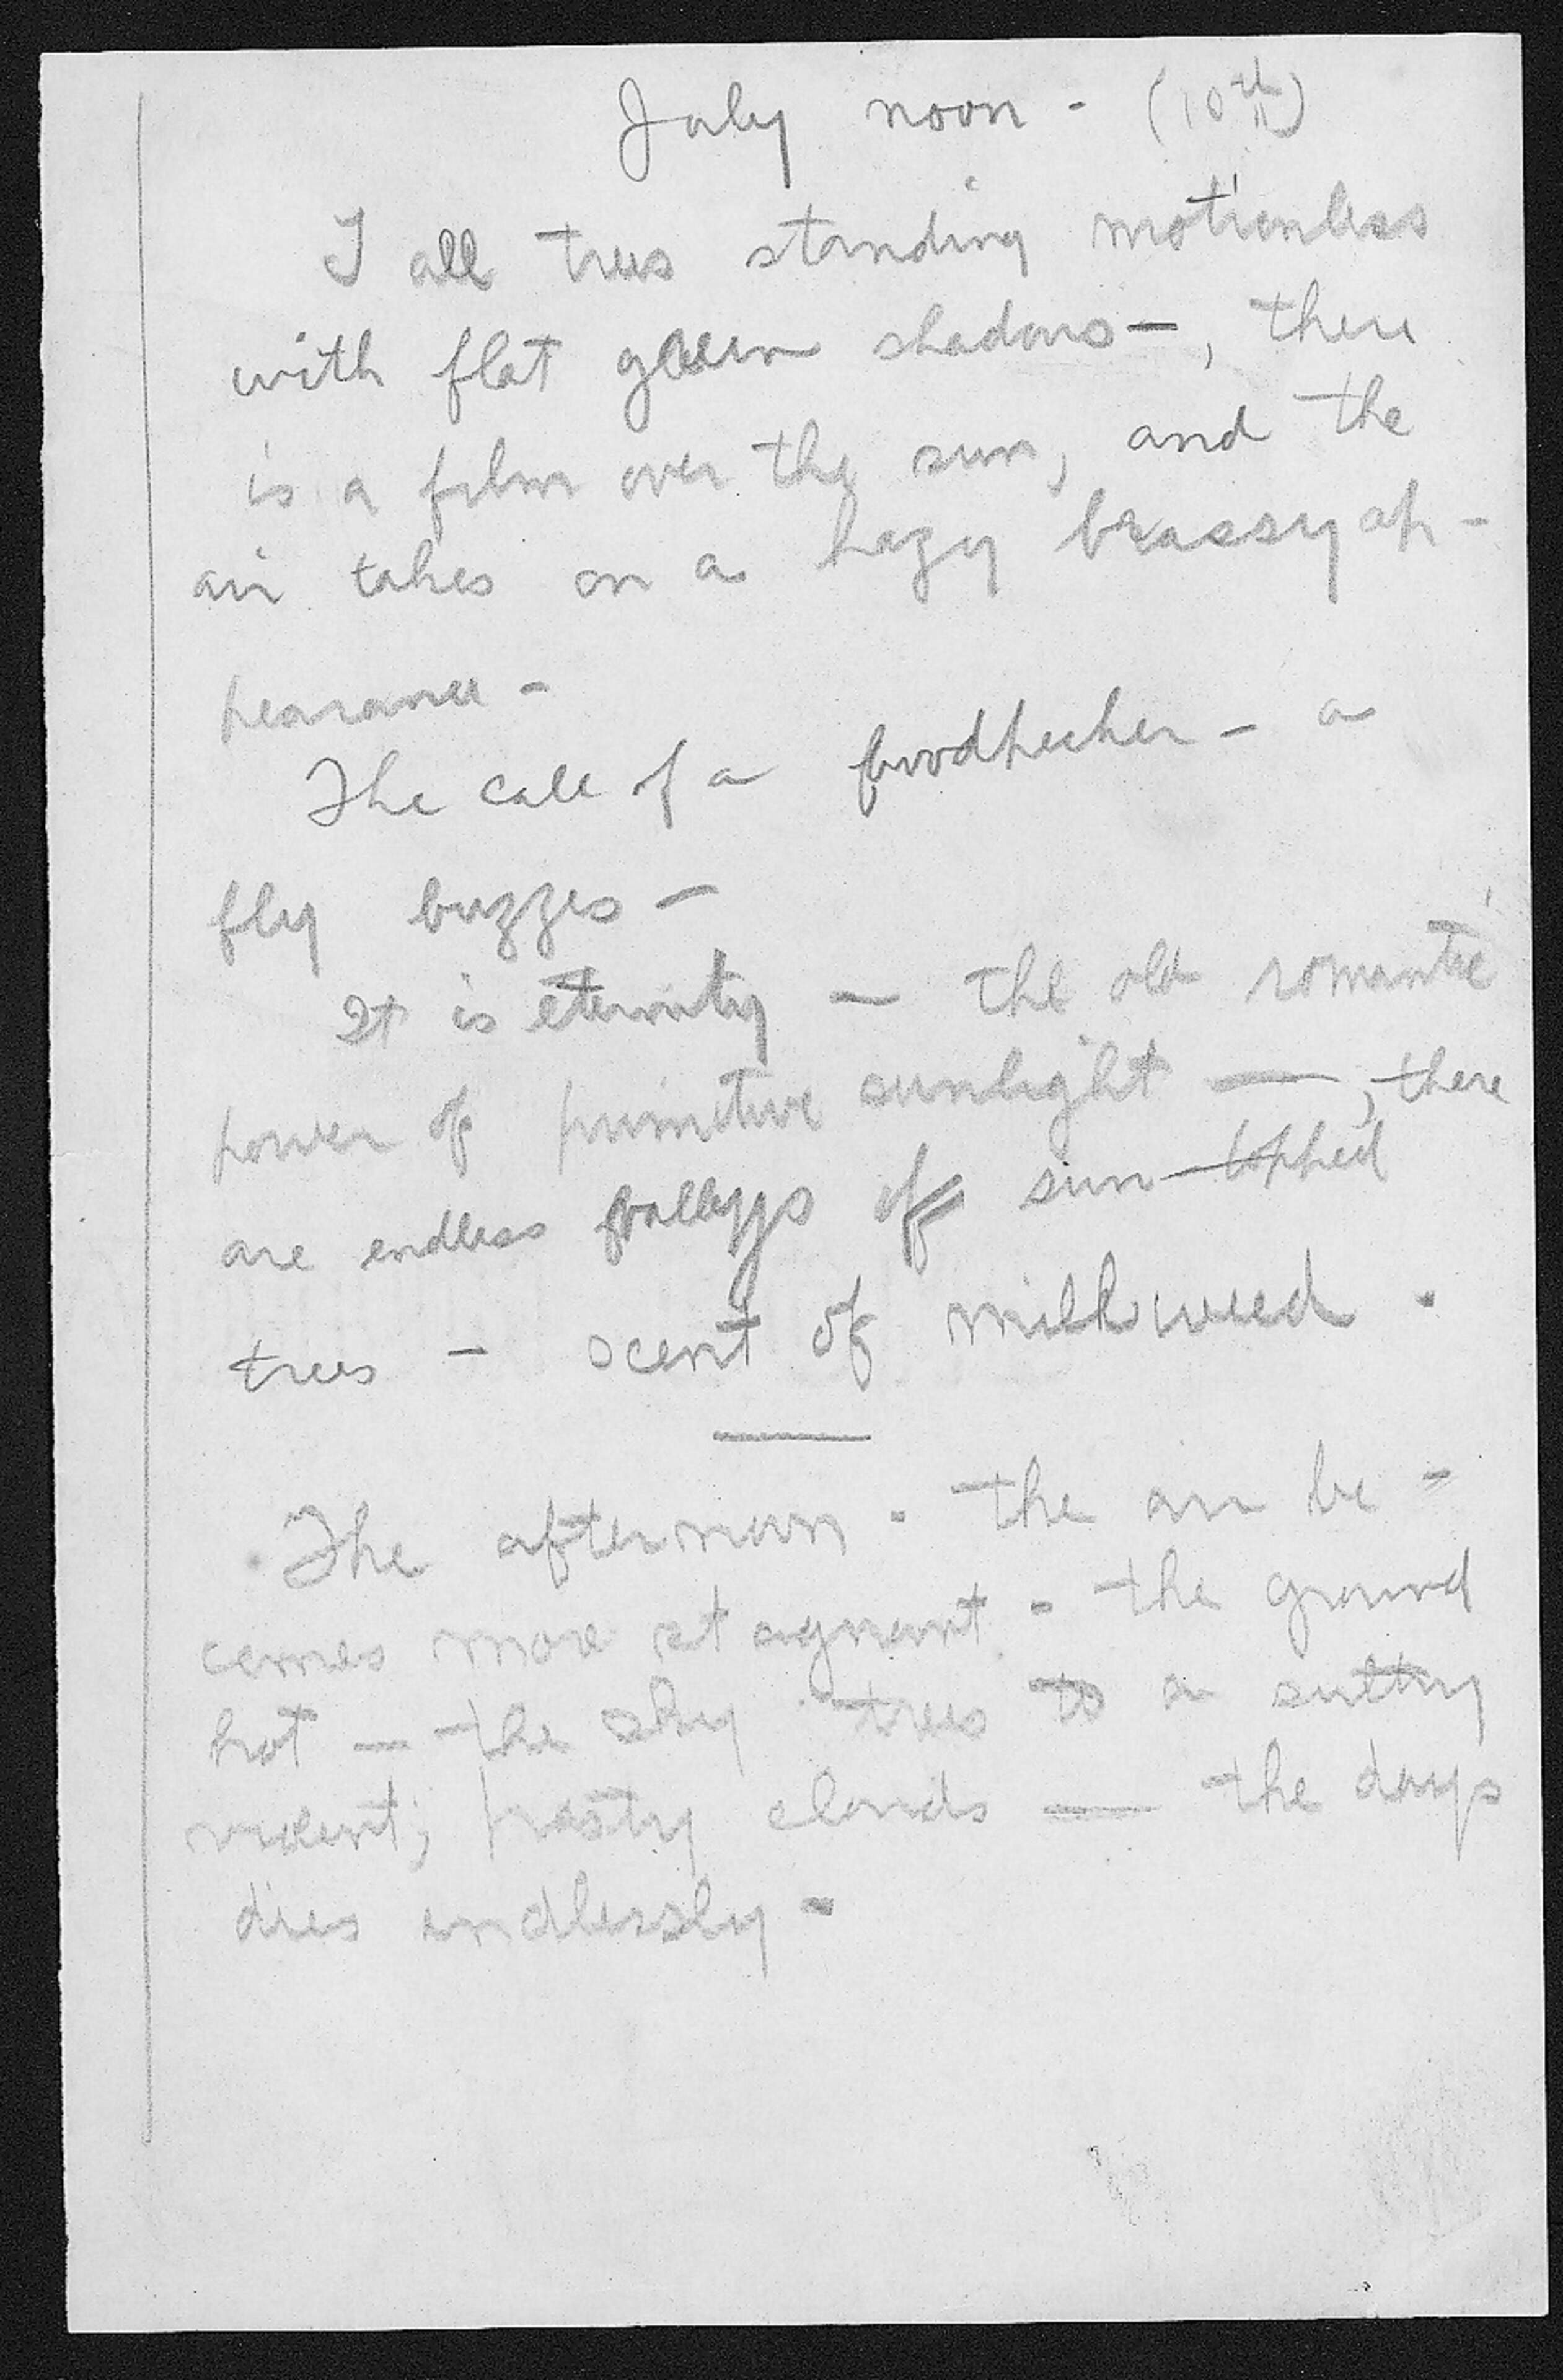 July noon - (10th)
I all trees standing motionless
with flat green shadows—, there
is a film over the sun, and the
air takes on a hazy brassy ap-
pearance -
The call of a woodpecker - a
fly buzzes -
It is eternity — the old romantic
power of primitive sunlight —, there
are endless valleys of sun-topped
trees - scent of milkweed.
The afternoon - the air be-
comes more stagnant - the ground
hot — the sky trees to a sultry
violent; pasty clouds — the days
dies endlessly -